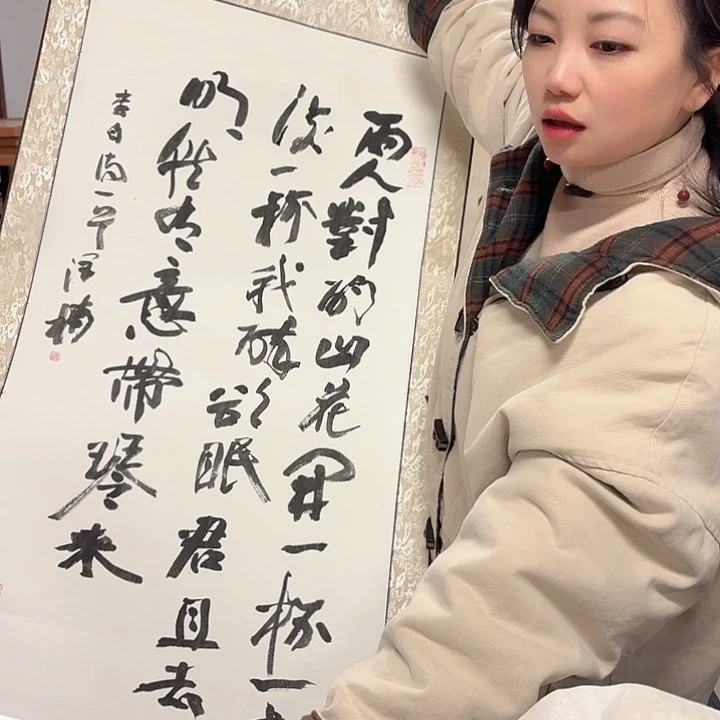 兩人對酌山花開一杯一
復一杯我醉欲眠君且去
明朝有意帶琴来
李白詩一首